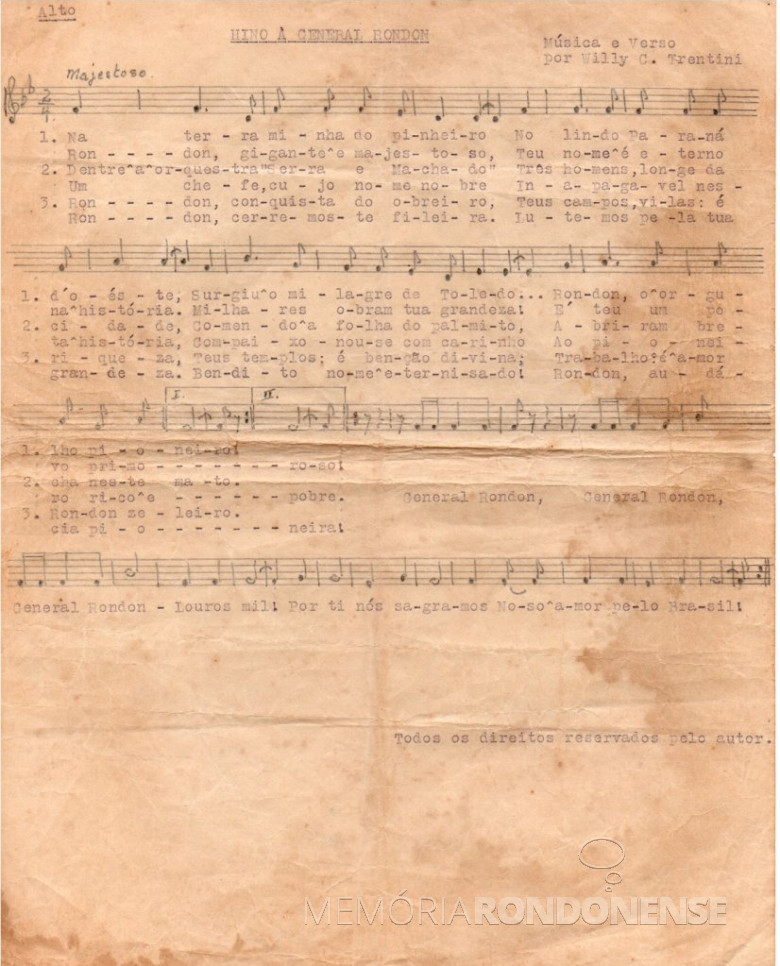 Alto
HINO À GENERAL RONDON
Música e Verso
por Willy C. Trentini
Majestoso
2/4
1. Na ter - ra mi - nha do pi-nhei-ro No lin-do Pa - ra-ná
Ron - - - - don, gi-gan-te^e ma-jes- to- so, Teu no-me^é e - terno
2. Dentre^a^or-ques-tra"Ser-ra e Ma-cha-do" Três ho-mens,lon-ge da
Um che - fe,cu - jo no-me no-bre In - a - pa-ga- vel nes-
3. Ron - - - - don, con-quis-ta do o-brei-ro, Teus cam-pos,vi-las: é
Ron - - - - don, cer-re-mos-te fi-lei-ra. Lu - te-mos pe-la tua
1. d'o - és - te, Sur-giu^o mi - la-gre de To-le-do... Ron-don, o^or - gu -
na^his-tória. Mi-lha - res o-bram tua grandeza! É teu um po -
2. ci - da - de, Co-men - do^a fo-lha do palmi-to, A - bri-ram bre -
ta^his-tória, Com-pai - xo - nou-se com ca-rinho Ao pi - o - nei -
3. ri - que - za, Teus tem-plos; é ben-ção di-vi-na; Tra-ba-lho:é^a-mor
gran-de - za. Ben-di - to no-me^e-ter-ni-sa-do! Ron-don, au - dá -
I. II.
1. lho pi - o - nei-ro!
vo pri-mo - - - - - - - ro-so!
2. cha nes-te ma -to.
ro ri-co^e - - - - - - - pobre. General Rondon, General Rondon,
3. Ron-don ze - lei-ro.
cia pi - o - - - - - - - neira!
General Rondon - Louros mil! Por ti nós sa-gra-mos No-so^a-mor pe-lo Bra-sil!
Todos os direitos reservados pelo autor.
MEMÓRIARONDONENSE